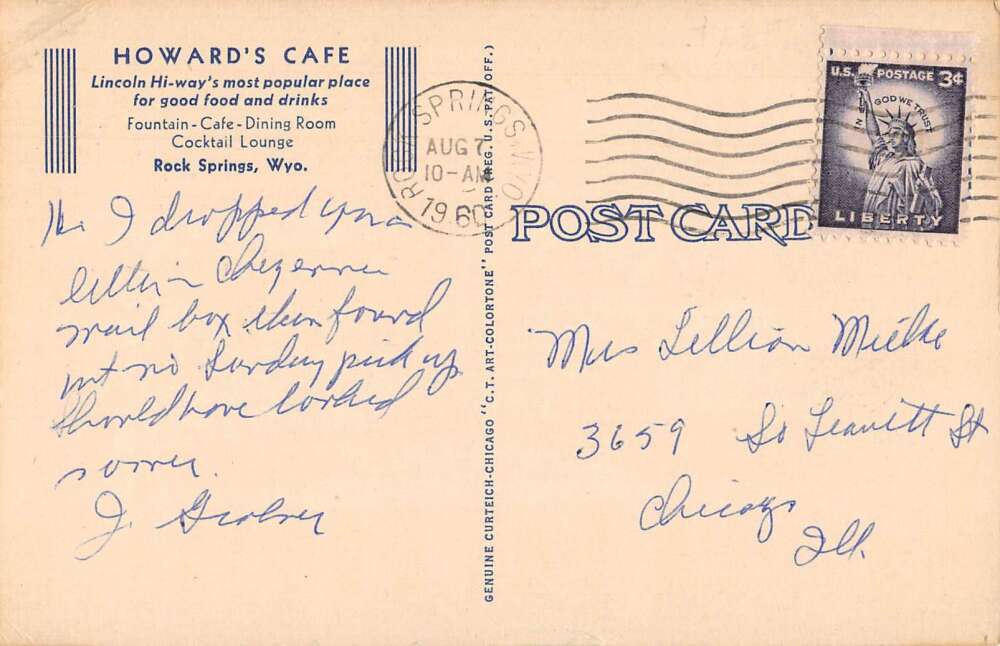 HOWARD'S CAFE
Lincoln Hi-way's most popular place
for good food and drinks
Fountain - Cafe - Dining Room
Cocktail Lounge
Rock Springs, Wyo.
I dropped your
letter in Cheyenne
mail box then found
out no Sunday pick up
Should have looked
sooner.
J.
GENUINE CURTEICH-CHICAGO "C.T. ART-COLORTONE" POST CARD (REG. U.S. PAT. OFF.)
ROCK SPRINGS, WYO
AUG 7
10-AM
1960
POST CARD
U.S. POSTAGE 3¢
IN GOD WE TRUST
LIBERTY
Mrs Lillian Mielke
3659 So Leavitt St
Chicago
Ill.